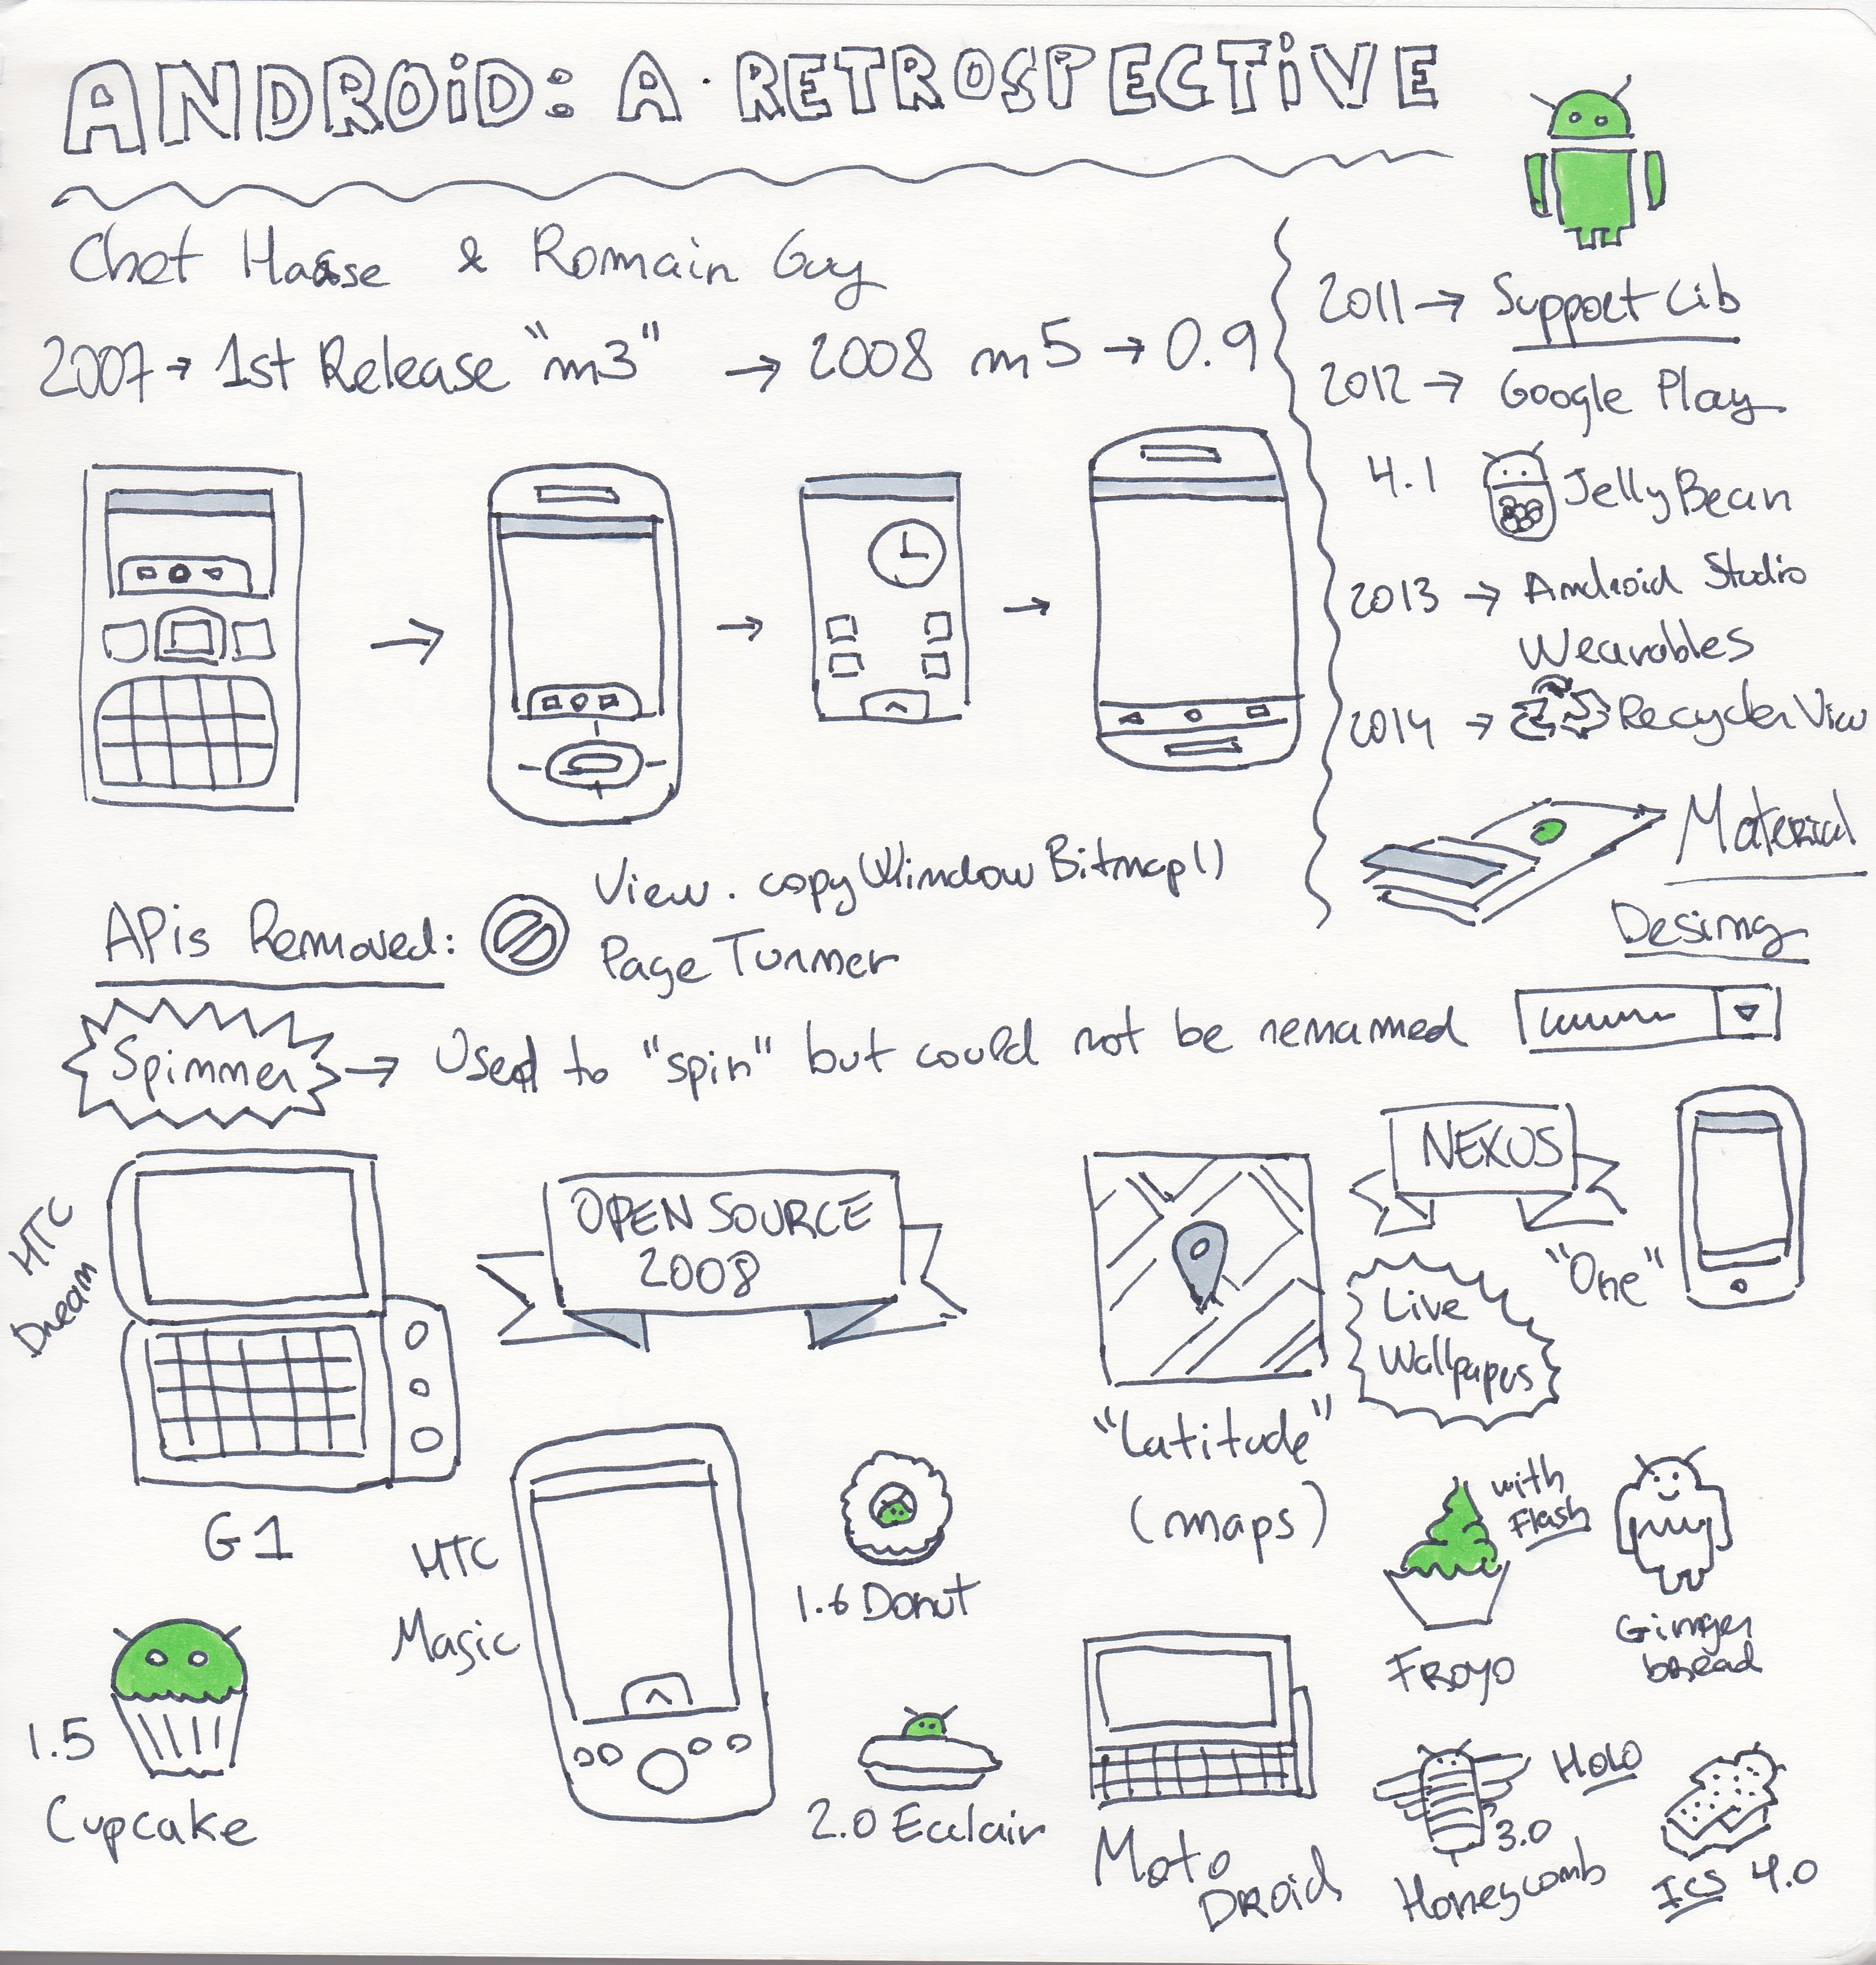 ANDROiD: A RETROSPECTiVE
Chet Haase & Romain Guy
2007 → 1st Release "m3" → 2008 m5 → 0.9
2011 → Support Lib
2012 → Google Play
4.1 Jelly Bean
2013 → Android Studio
Wearables
2014 → RecyclerView
Material
Desimg
APis Removed:
View.copyWindowBitmap()
Page Turnner
Spinner → Used to "spin" but could not be renamed
HTC
Dream
G1
OPEN SOURCE
2008
"Latitude"
(maps)
NEXUS
"One"
Live
Wallpapers
HTC
Magic
1.5
Cupcake
1.6 Donut
2.0 Ecclair
Moto
DROid
with
Flash
FROYO
Ginger
bread
Holo
3.0
Honeycomb
ICS 4.0